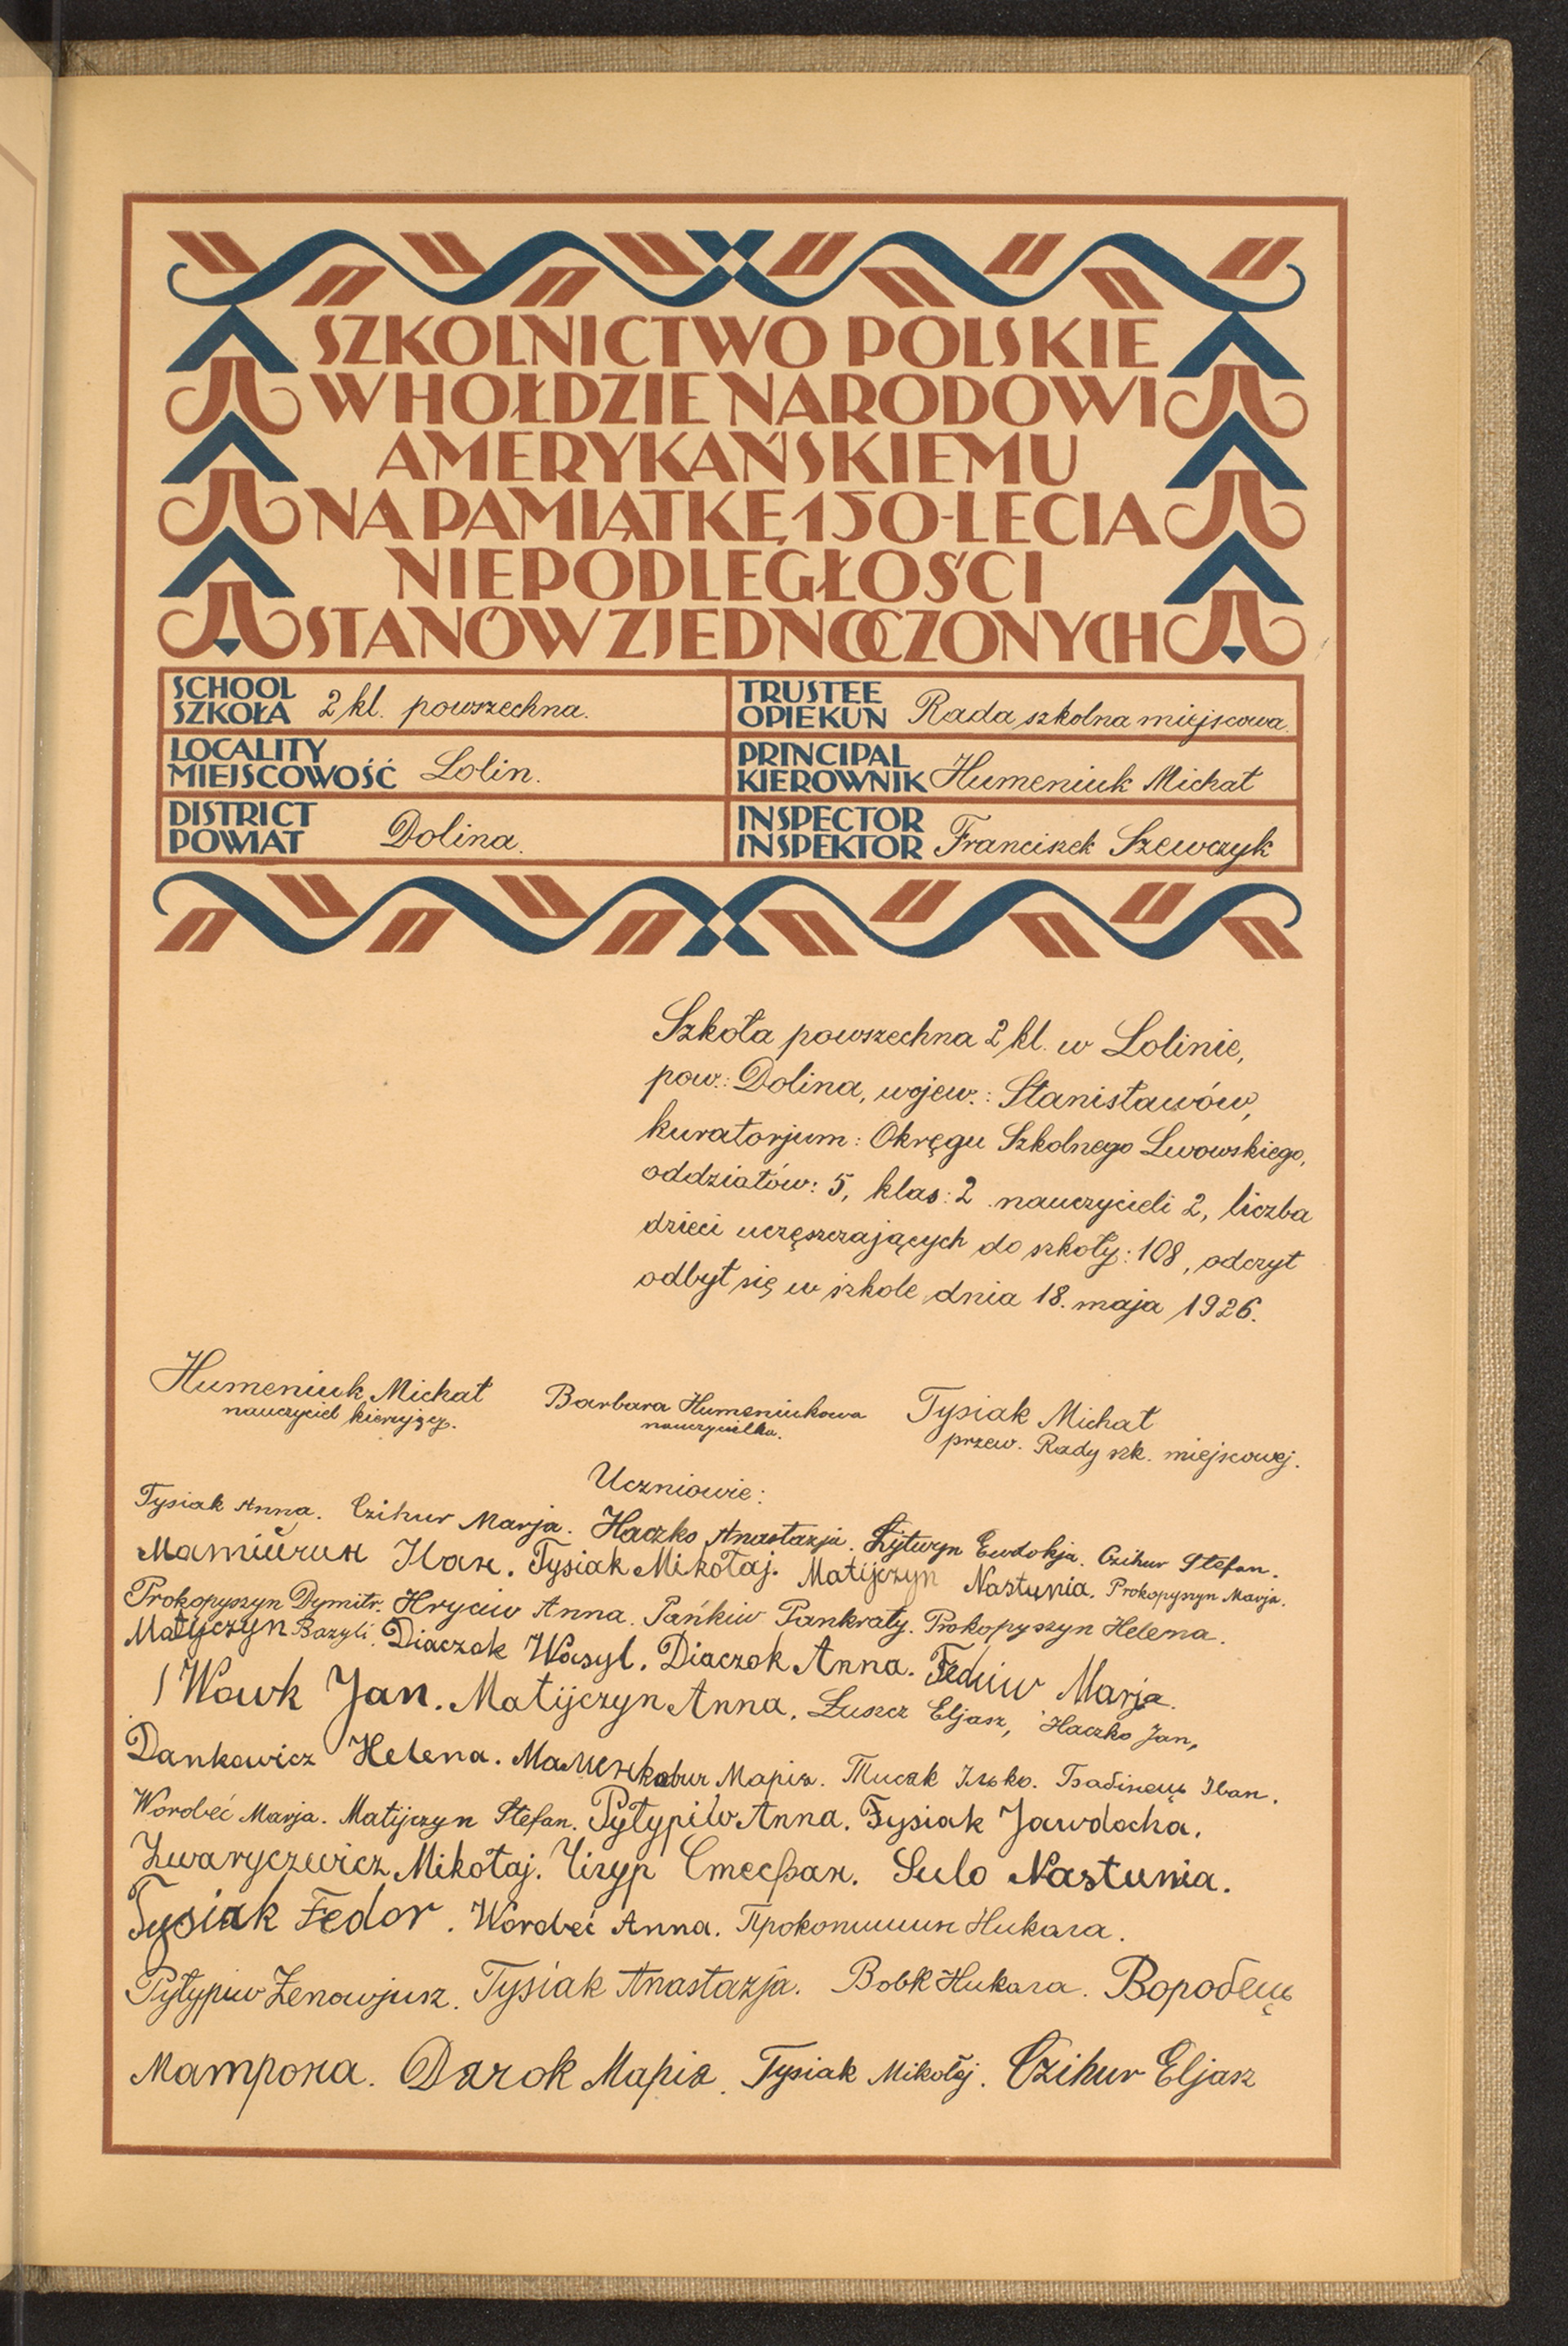 SZKOLNICTWO POLSKIE
W HOŁDZIE NARODOWI
AMERYKAŃSKIEMU
NA PAMIĄTKĘ 150-LECIA
NIEPODLEGŁOŚCI
STANÓW ZJEDNOCZONYCH
SCHOOL
SZKOŁA 2 kl. powszechna.
TRUSTEE
OPIEKUN Rada szkolna miejscowa.
LOCALITY
MIEJSCOWOŚĆ Lolin.
PRINCIPAL
KIEROWNIK Humeniuk Michał
DISTRICT
POWIAT Dolina.
INSPECTOR
INSPEKTOR Franciszek Szewczyk
Szkoła powszechna 2 kl. w Lolinie,
pow.: Dolina, wojew.: Stanisławów,
kuratorjum: Okręgu Szkolnego Lwowskiego,
oddziałów: 5, klas: 2 nauczycieli 2, liczba
dzieci uczęszczających do szkoły: 108, odczyt
odbył się w szkole dnia 18. maja 1926.
Humeniuk Michał
nauczyciel kierujący.
Barbara Humeniukowa
nauczycielka.
Tysiak Michał
przew. Rady szk. miejscowej.
Uczniowie:
Tysiak Anna. Czihur Marja. Haczko Anastazja. Łytwyn Ewdokja. Czihur Stefan.
Матійчин Іван. Tysiak Mikołaj. Matijczyn Nastunia. Prokopyszyn Marja.
Prokopyszyn Dymitr. Hryciw Anna. Pańkiw Pankraty. Prokopyszyn Helena.
Matijczyn Bazyli. Diaczok Wasyl. Diaczok Anna. Feduiw Marja.
Wowk Jan. Matijczyn Anna. Łuszcz Eljasz, Haczko Jan,
Dankowicz Helena. Марія. Тисяк Ілько. Бабінець Іван.
Worobeć Marja. Matijczyn Stefan. Pyłypiw Anna. Tysiak Jawdocha.
Zwaryczewicz Mikołaj. Чігур Стефан. Sulo Nastunia.
Tysiak Fedor. Worobeć Anna. Прокопишин Микола.
Pyłypiw Zenowjusz. Tysiak Anastazja. Вовк Микола. Воробець
Матрона. Дячок Марія. Tysiak Mikołaj. Czihur Eljasz